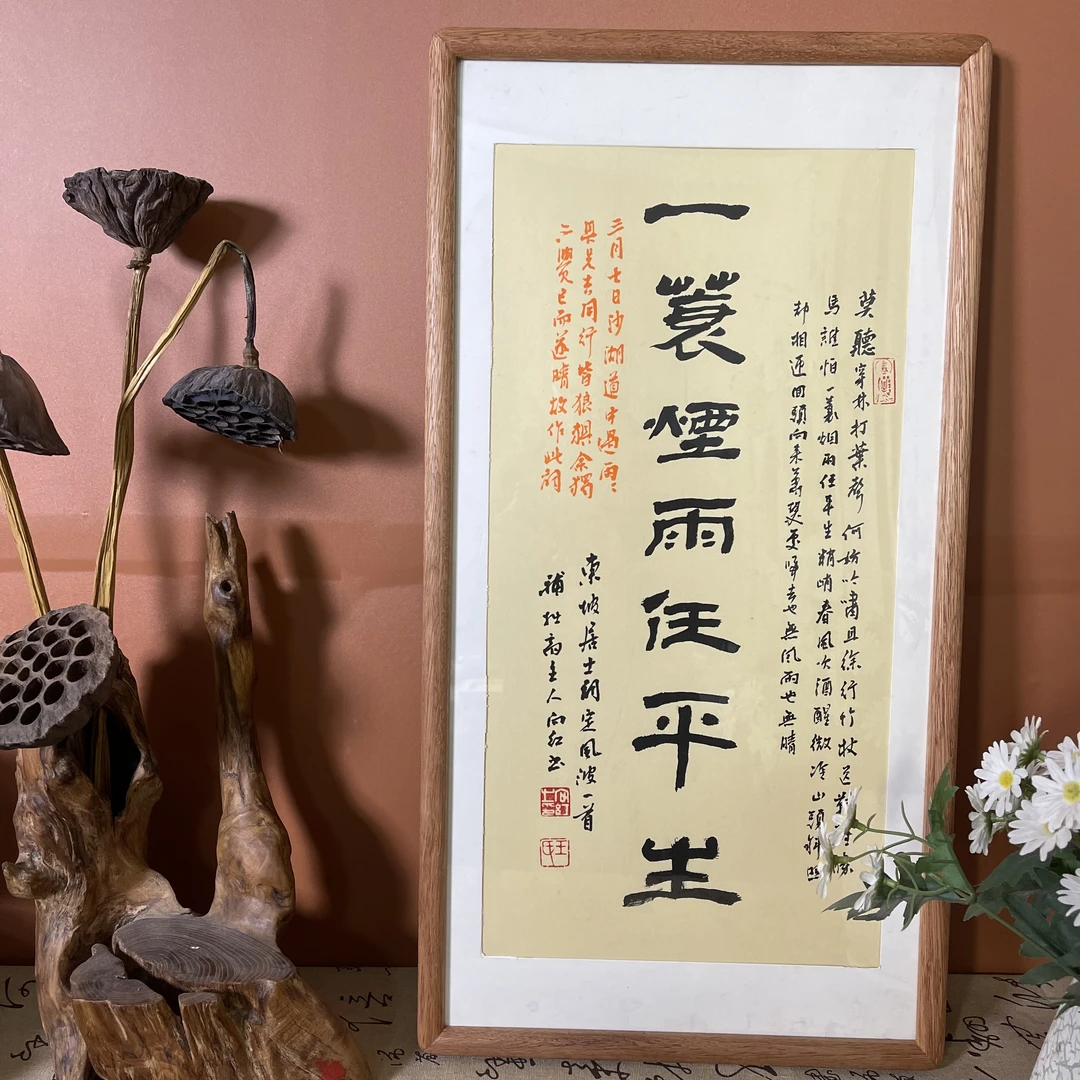 莫聽穿林打葉聲何妨吟嘯且徐行竹杖
馬誰怕一蓑烟雨任平生料峭春風吹酒醒微冷山頭斜照
却相迎回頭向來蕭瑟處歸去也無風雨也無晴
一蓑煙雨任平生
三月七日沙湖道中遇雨〻
具先去同行皆狼狽余獨
不覺已而遂晴故作此詞
東坡居士詞定風波一首
補拙斋主人向红书